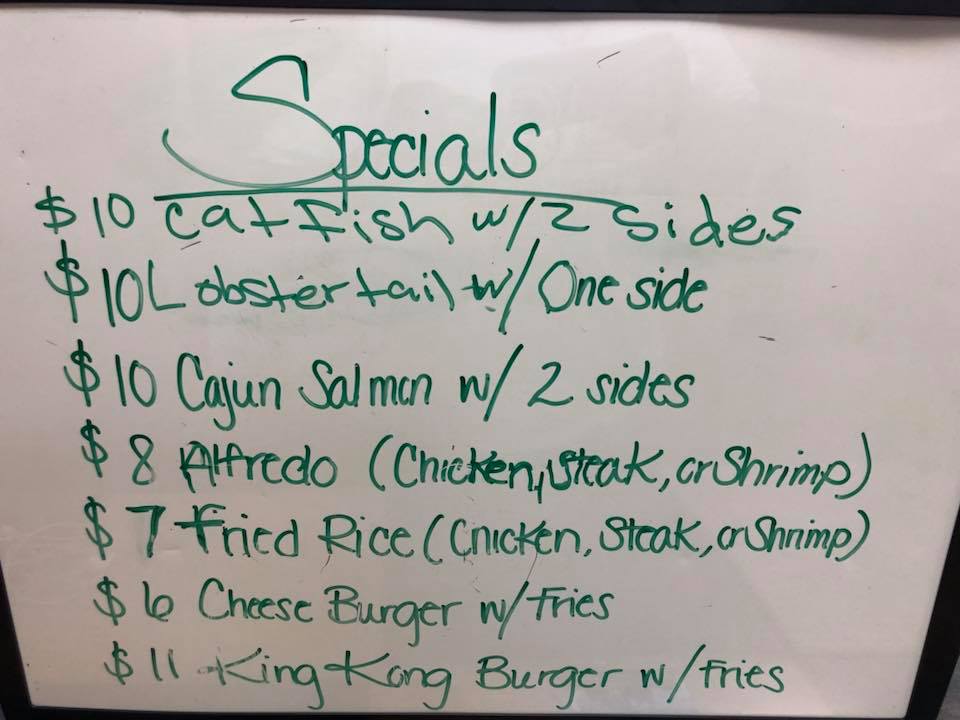 Specials
$10 Catfish w/2 sides
$10 Lobster tail w/ One side
$10 Cajun Salmon w/ 2 sides
$8 Alfredo (Chicken, Steak, or Shrimp)
$7 Fried Rice (Chicken, Steak, or Shrimp)
$6 Cheese Burger w/ Fries
$11 King Kong Burger w/ Fries